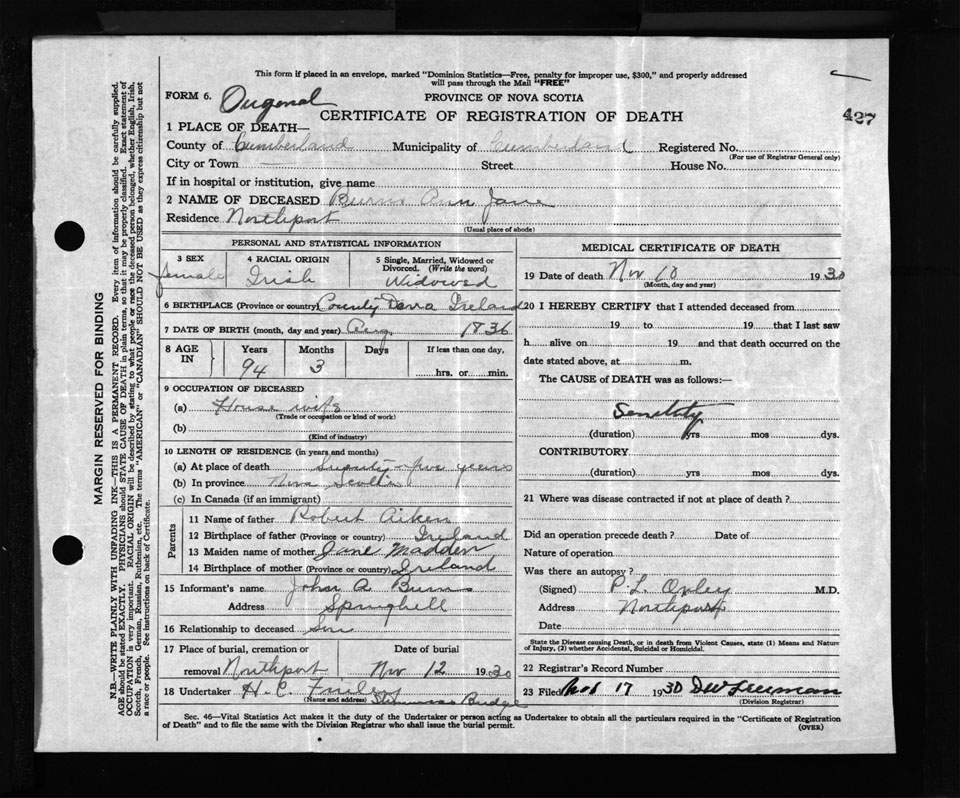 This form if placed in an envelope, marked "Dominion Statistics—Free, penalty for improper use, $300," and properly addressed
will pass through the Mail "FREE"
FORM 6.
PROVINCE OF NOVA SCOTIA
CERTIFICATE OF REGISTRATION OF DEATH
427
1 PLACE OF DEATH—
County of Cumberland Municipality of Cumberland Registered No.
(For use of Registrar General only)
City or Town Street House No.
If in hospital or institution, give name
2 NAME OF DECEASED Burns Ann Jane
Residence Northport
(Usual place of abode)
PERSONAL AND STATISTICAL INFORMATION
3 SEX
female
4 RACIAL ORIGIN
Irish
5 Single, Married, Widowed or
Divorced. (Write the word)
Widowed
6 BIRTHPLACE (Province or country) County Ireland
7 DATE OF BIRTH (month, day and year) Aug 1836
8 AGE
IN
Years
94
Months
3
Days
If less than one day,
hrs. or min.
9 OCCUPATION OF DECEASED
(a) House wife
(Trade or occupation or kind of work)
(b)
(Kind of industry)
10 LENGTH OF RESIDENCE (in years and months)
(a) At place of death five years
(b) In province Nova Scotia
(c) In Canada (if an immigrant)
Parents
11 Name of father Robert Aiken
12 Birthplace of father (Province or country) Ireland
13 Maiden name of mother Jane Madden
14 Birthplace of mother (Province or country) Ireland
15 Informant's name John A Burns
Address Springhill
16 Relationship to deceased Son
17 Place of burial, cremation or
removal Northport
Date of burial
Nov 12 1930
18 Undertaker H. C.
(Name and address) Bridge
MEDICAL CERTIFICATE OF DEATH
19 Date of death Nov 10 1930
(Month, day and year)
20 I HEREBY CERTIFY that I attended deceased from
19 to 19 that I last saw
h alive on 19 and that death occurred on the
date stated above, at m.
The CAUSE of DEATH was as follows:—
Senility
(duration) yrs mos dys.
CONTRIBUTORY
(duration) yrs mos dys.
21 Where was disease contracted if not at place of death?
Did an operation precede death? Date of
Nature of operation
Was there an autopsy?
(Signed) P. L. Oxley M.D.
Address Northport
Date
State the Disease causing Death, or in death from Violent Causes, state (1) Means and Nature
of Injury, (2) whether Accidental, Suicidal or Homicidal.
22 Registrar's Record Number
23 Filed Nov 17 1930
(Division Registrar)
Sec. 46—Vital Statistics Act makes it the duty of the Undertaker or person acting as Undertaker to obtain all the particulars required in the "Certificate of Registration
of Death" and to file the same with the Division Registrar who shall issue the burial permit.
(OVER)
MARGIN RESERVED FOR BINDING
N.B.—WRITE PLAINLY WITH UNFADING INK—THIS IS A PERMANENT RECORD. Every item of information should be carefully supplied.
AGE should be stated EXACTLY. PHYSICIANS should STATE CAUSE OF DEATH in plain terms, so that it may be properly classified. Exact statement of
OCCUPATION is very important. RACIAL ORIGIN will be described by stating to what people or race the deceased person belonged, whether English, Irish,
Scotch, French, German, Russian, Ruthenian, etc. The terms "AMERICAN" or "CANADIAN" SHOULD NOT BE USED as they express citizenship but not
a race or people. See instructions on back of Certificate.